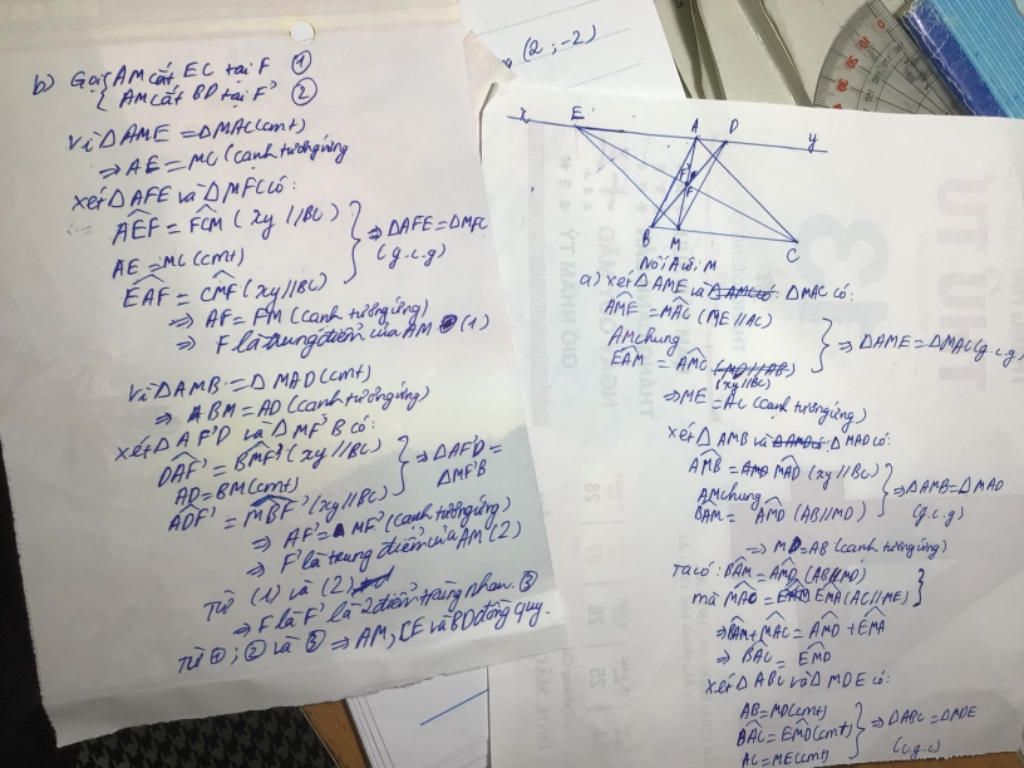 b) Gọi { AM cắt EC tại F ①
{ AM cắt BD tại F' ②
Vì ΔAME = ΔMAC (cmt)
⇒ AE = MC (cạnh tương ứng
xét ΔAFE và ΔMFC có:
AEF = FCM (xy//BC)
AE = MC (cmt)
EAF = CMF (xy//BC)
} ⇒ ΔAFE = ΔMFC
(g.c.g)
⇒ AF = FM (cạnh tương ứng)
⇒ F là trung điểm của AM (1)
Vì ΔAMB = ΔMAD (cmt)
⇒ BM = AD (cạnh tương ứng)
xét ΔAF'D và ΔMF'B có:
DAF' = BMF' (xy//BC)
AD = BM (cmt)
ADF' = MBF' (xy//BC)
} ⇒ ΔAF'D =
ΔMF'B
⇒ AF' = MF' (cạnh tương ứng)
⇒ F' là trung điểm của AM (2)
Từ (1) và (2)
⇒ F là F' là 2 điểm trùng nhau. ③
Từ ①; ② và ③ ⇒ AM, CE và BD đồng quy.
(2; -2)
x E A D y
F' F
B M C
Nối A với M
a) xét ΔAME và ΔMAC có:
AME = MAC (ME//AC)
AM chung
EAM = AMC (MD//AB)
(xy//BC)
} ⇒ ΔAME = ΔMAC (g.c.g)
⇒ ME = AC (cạnh tương ứng)
xét ΔAMB và ΔMAD có:
AMB = MAD (xy//BC)
AM chung
BAM = AMD (AB//MD)
} ⇒ ΔAMB = ΔMAD
(g.c.g)
⇒ MD = AB (cạnh tương ứng)
Ta có: BAM = AMD (AB//MD)
mà MAC = EMA (AC//ME)
⇒ BAM + MAC = AMD + EMA
⇒ BAC = EMD
xét ΔABC và ΔMDE có:
AB = MD (cmt)
BAC = EMD (cmt)
AC = ME (cmt)
} ⇒ ΔABC = ΔMDE
(c.g.c)